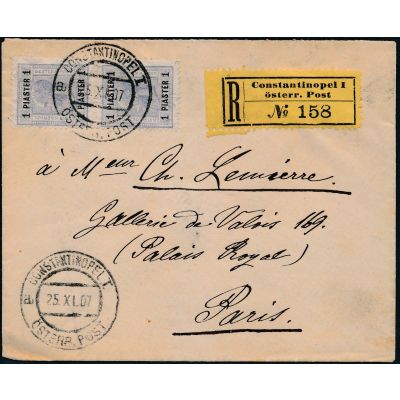 PIASTER 1
1 PIASTER 1
1 PIASTER
CONSTANTINOPEL I
a
25.XI.07
ÖSTERR. POST
R
Constantinopel I
österr. Post
№ 158
à Meur Ch. Lemierre.
Gallerie de Valois 169.
(Palais Royal)
Paris.
CONSTANTINOPEL I
a
25.XI.07
ÖSTERR. POST